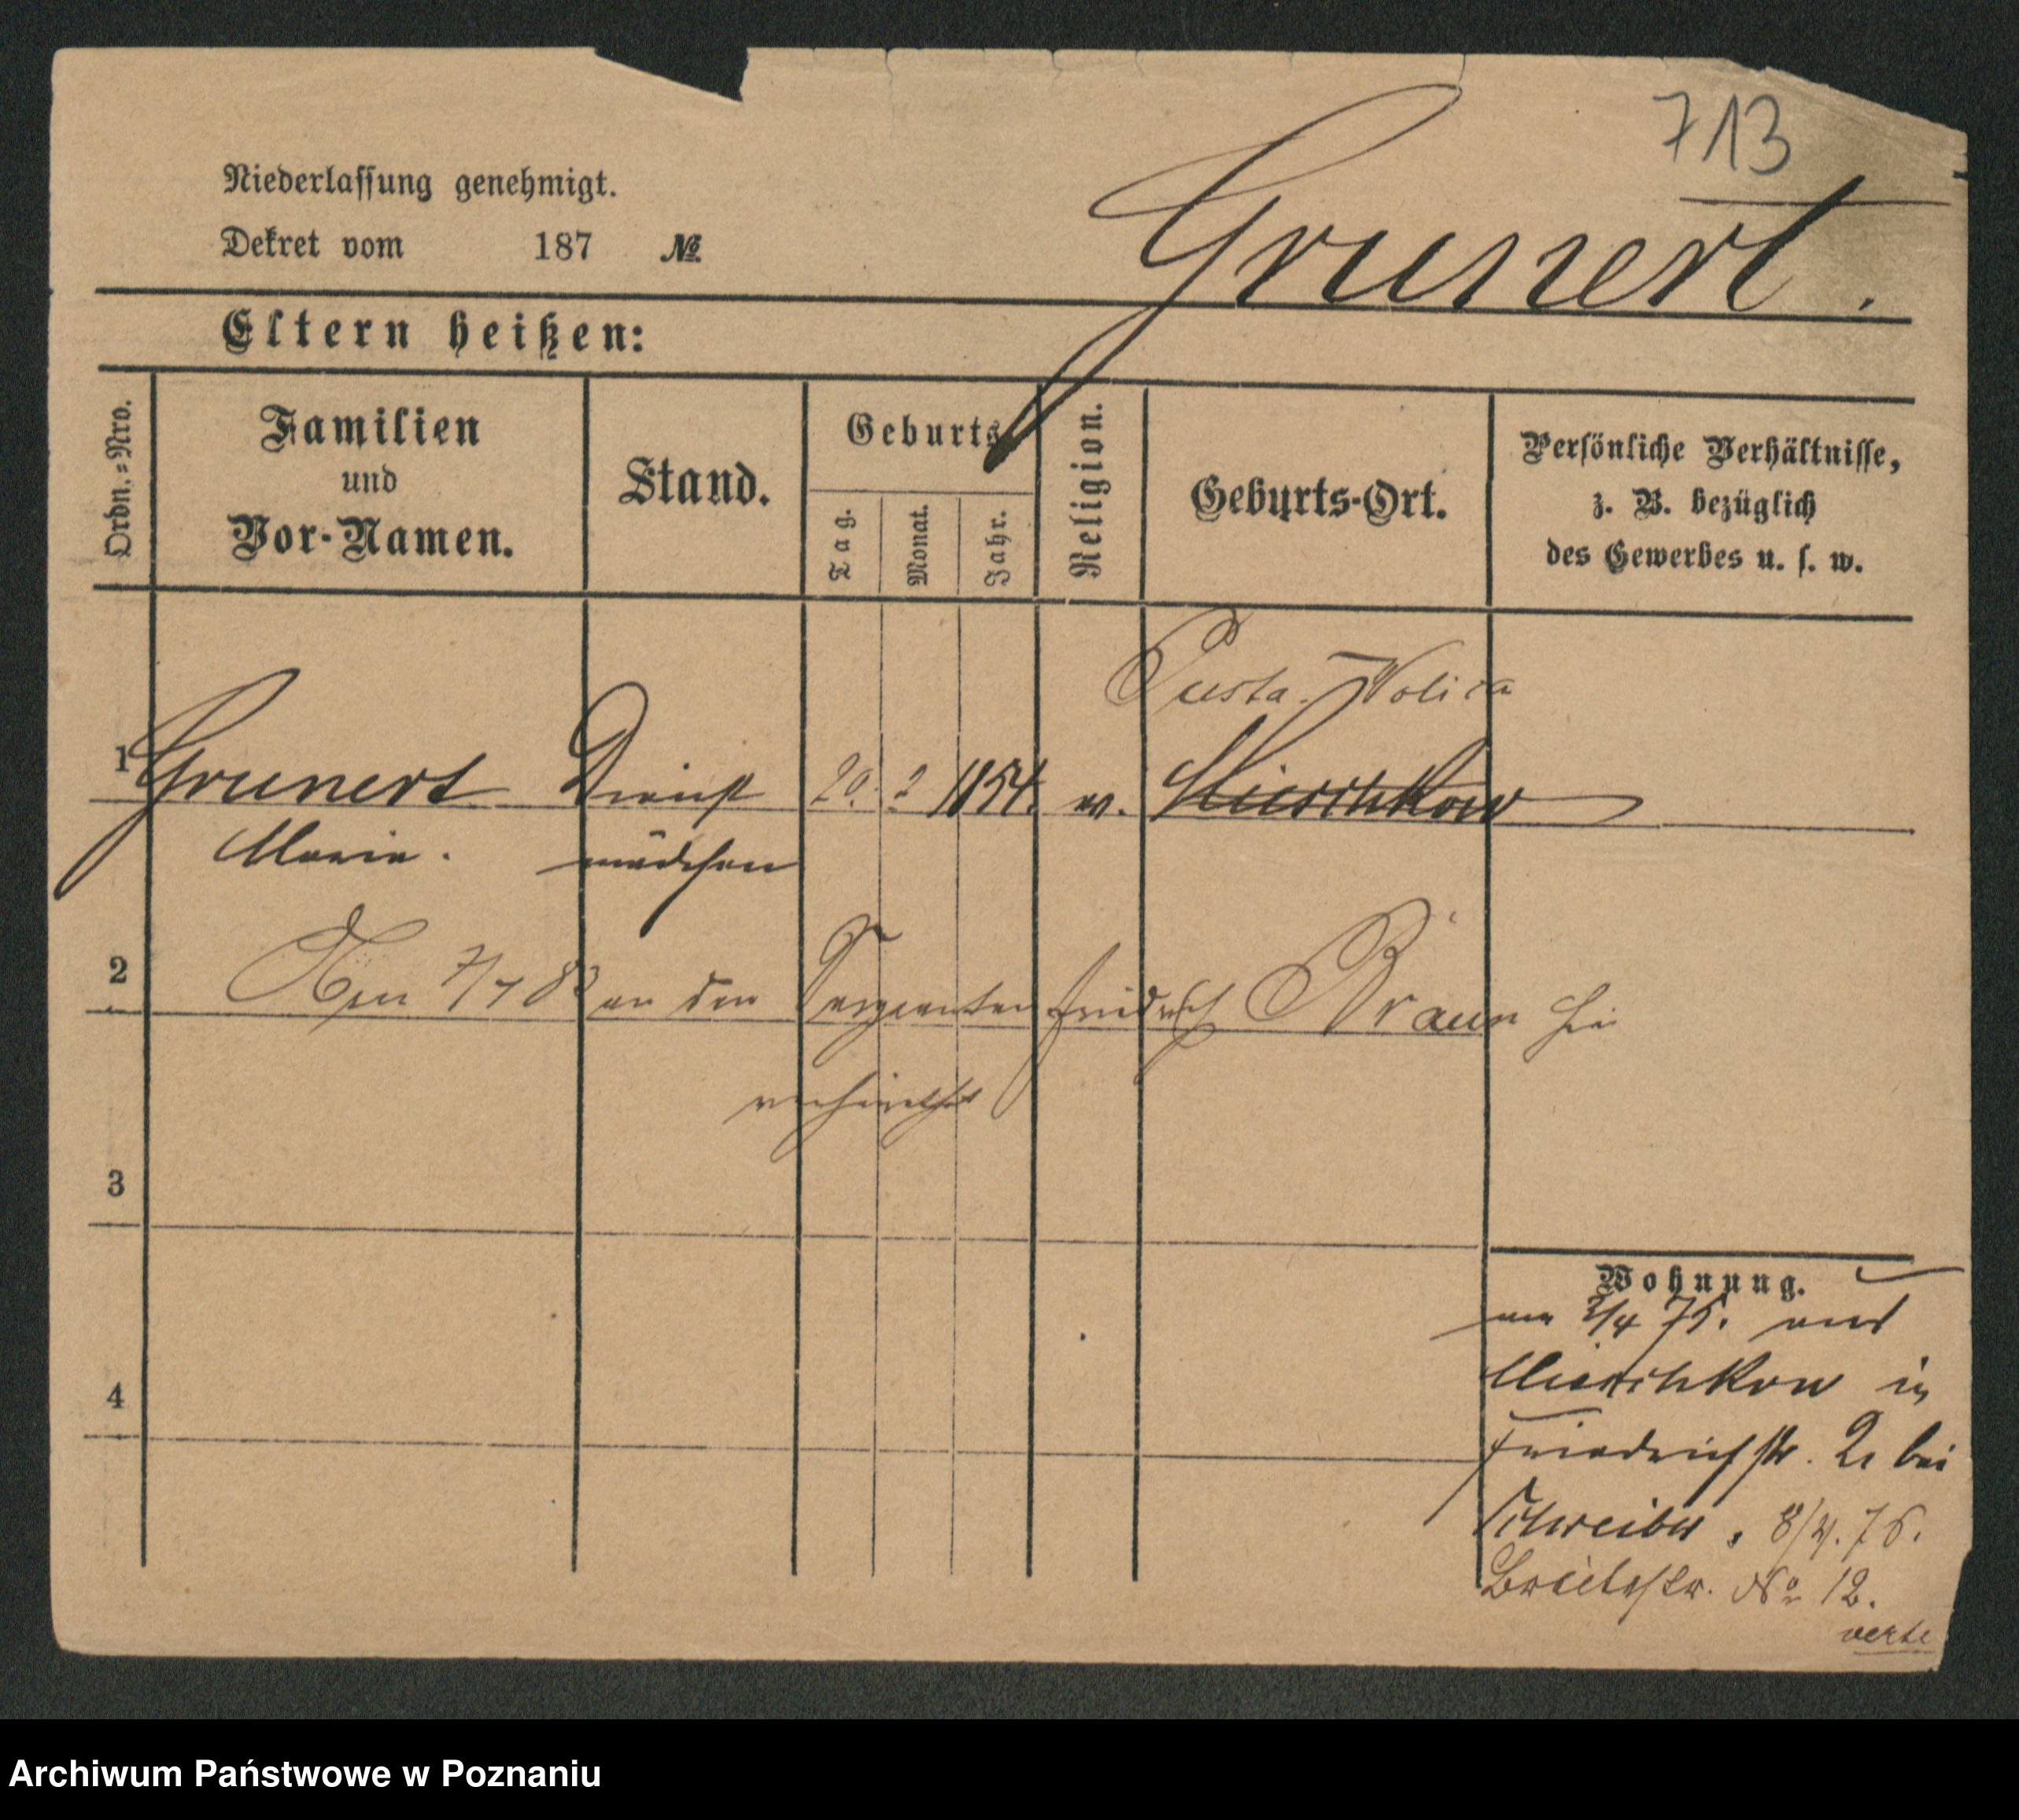 713
Niederlassung genehmigt.
Dekret vom 187 №
Grunert.
Eltern heißen:
Ordn.-Nro.
Familien
und
Vor-Namen.
Stand.
Geburts
Tag.
Monat.
Jahr.
Religion.
Geburts-Ort.
Persönliche Verhältnisse,
z. B. bezüglich
des Gewerbes u. s. w.
Pusta-Wolica
1 Grunert Dienst 20. 2 1854. ev. Mieschkow
Marie. mädchen
2 7/7 83 an den Sergeanten Friedrich Braun hie
verheirathet
3
4
Wohnung.
2/4 75. aus
Mieschkow in
Friedrichstr. 21 bei
Schreiber. 8/4. 76.
Breitestr. No 12.
verte
Archiwum Państwowe w Poznaniu